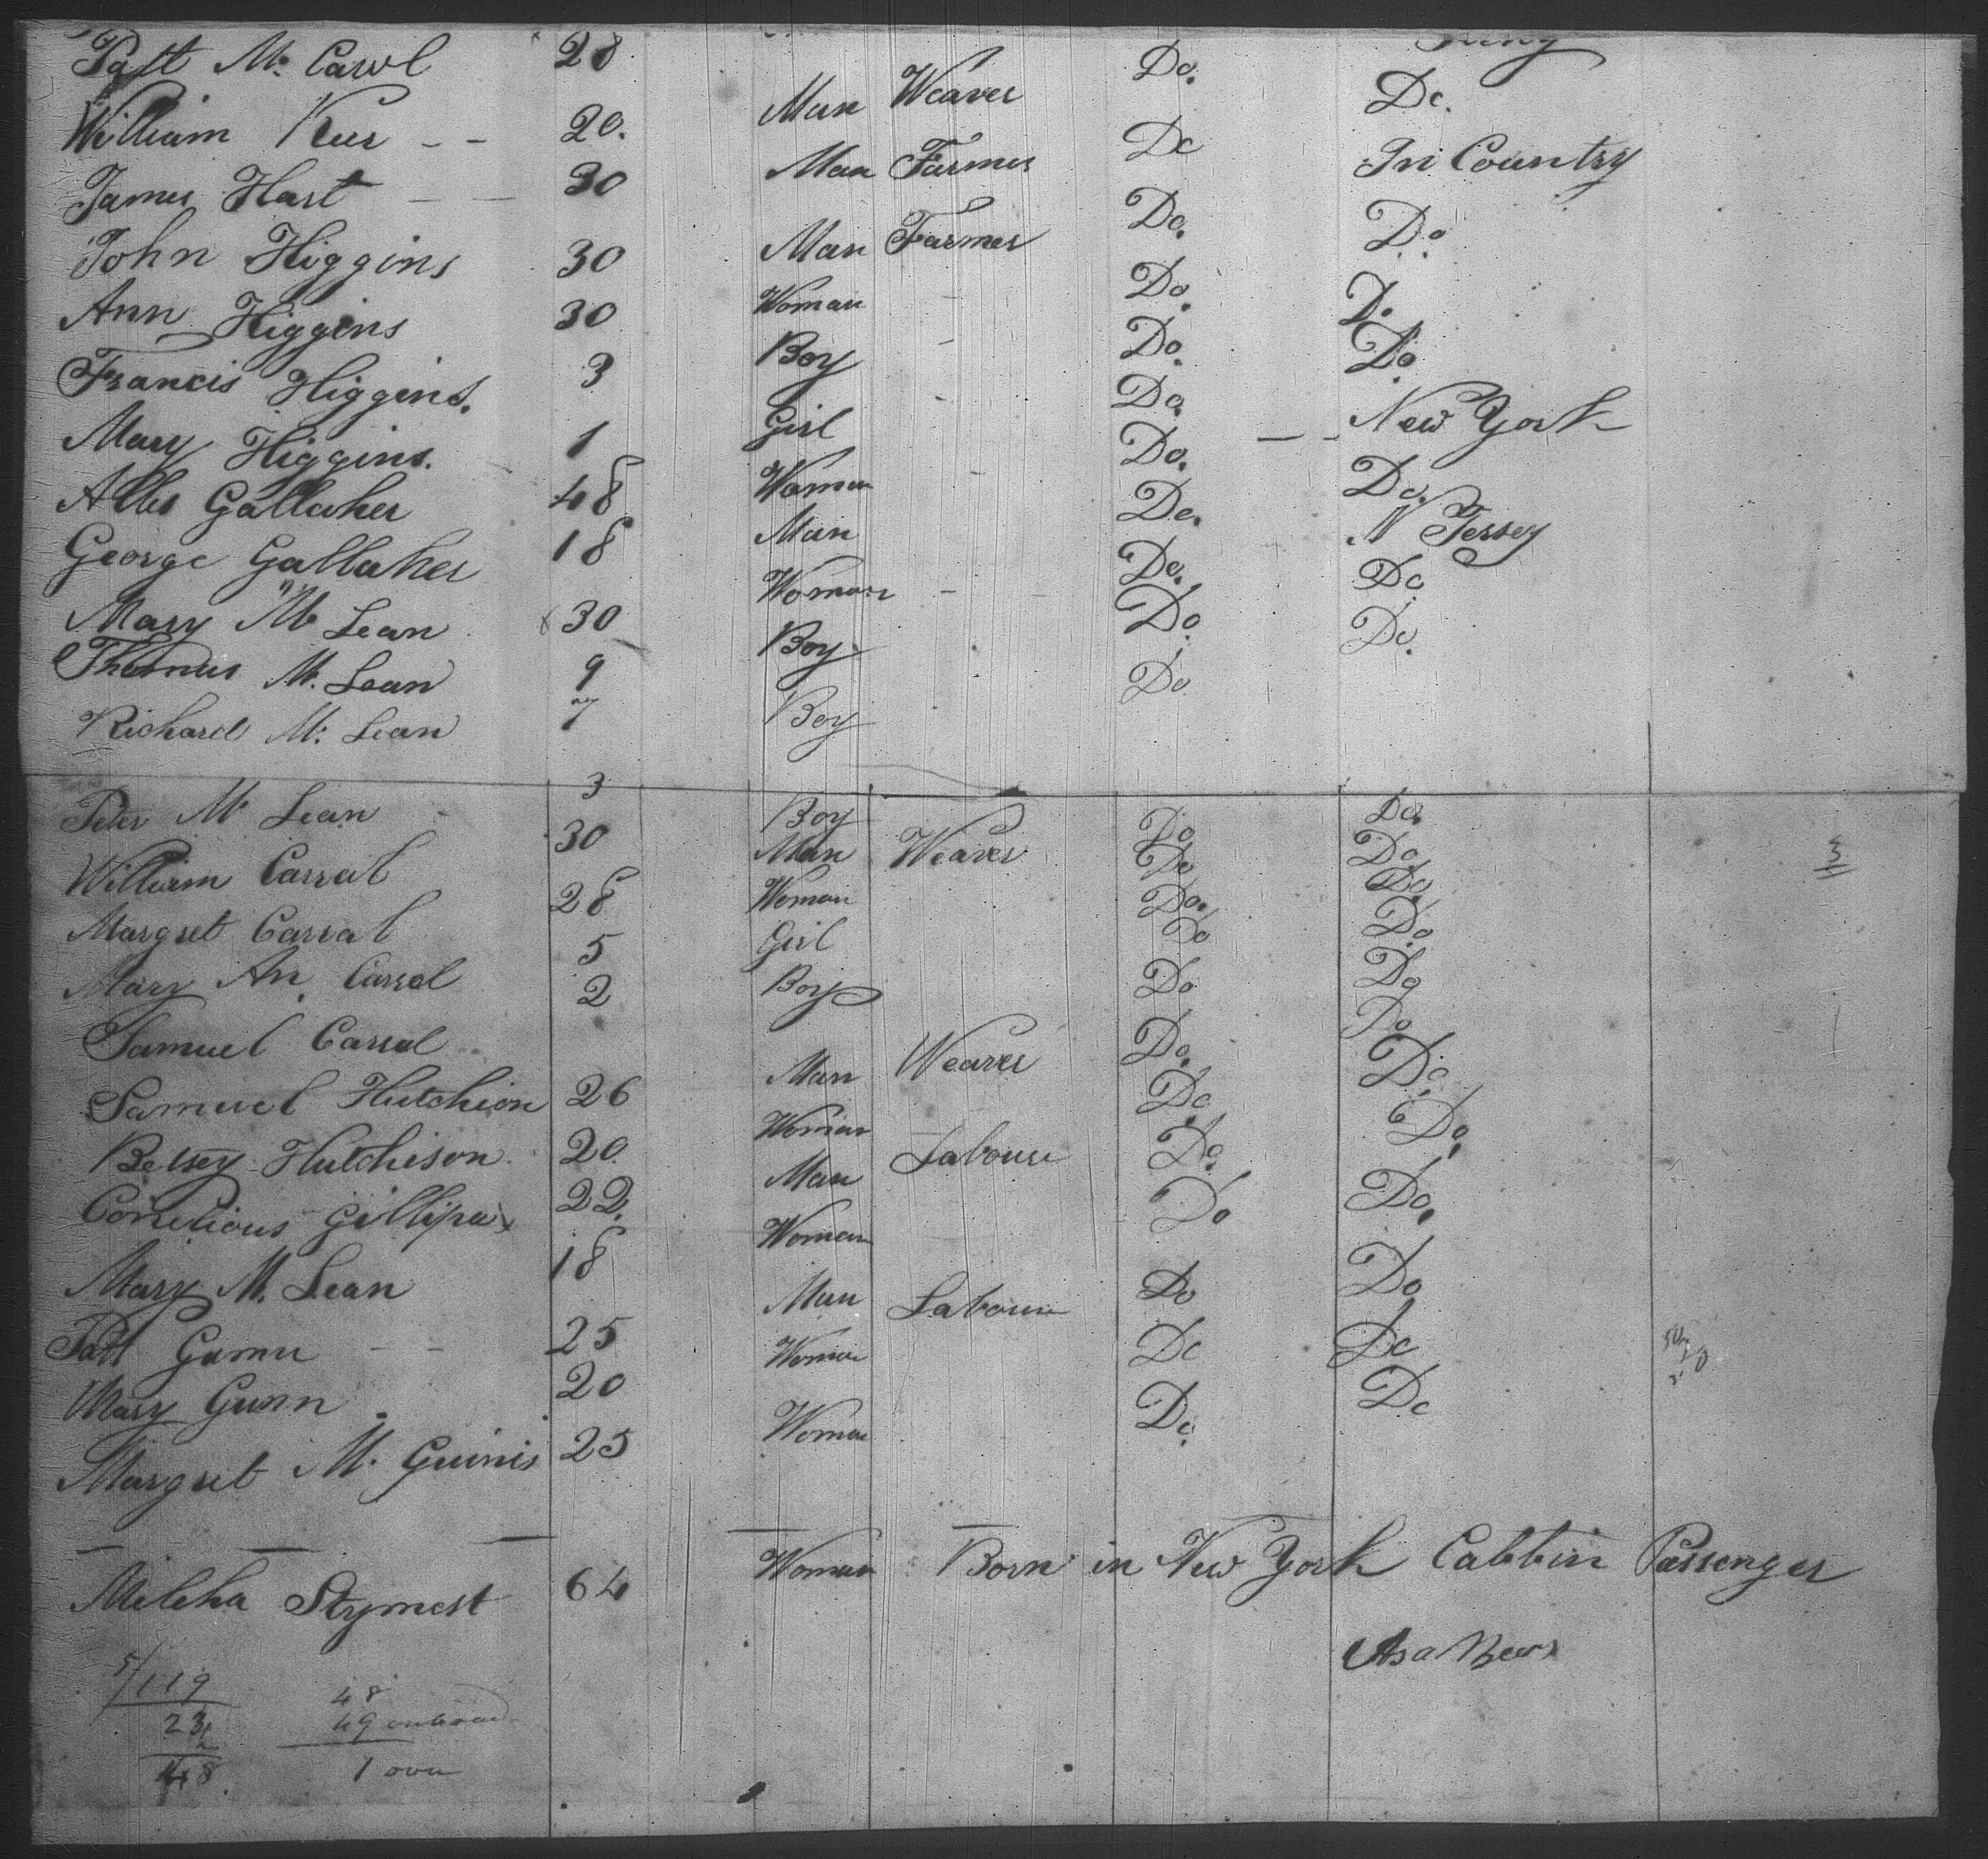 Patt Mc Carol 28 Man Weaver Do. Do.
William Kerr - - 20. Man Farmer Do In Country
James Hart - - 30 Man Farmer Do. Do.
John Higgins 30
Ann Higgins 30 Woman - Do. Do.
Francis Higgins. 3 Boy - Do. Do
Mary Higgins. 1 Girl - Do. - - New York
Alles Gallaher 48 Woman Do. Do.
George Gallaher 18 Man Do. N Jersey
Mary Mc Lean 30 Woman - Do. Do
Thomas Mc. Lean 9 Boy Do Do.
Richard Mc. Lean 7 Boy Do
Peter Mc Lean 3 Boy Do Do.
William Carral 30 Man Weaver Do Do
Margret Carral 28 Woman Do. Do
Mary An Carral 5 Girl Do Do
Samuel Carral 2 Boy Do Do
Do
Samuel Hutchion 26 Man Weaver Do. Do
Betsey Hutchison 20 Woman Do Do
Cornelious Gillipa 22. Man Labourer Do. Do.
Mary Mc. Lean 18 Woman Do Do
Patt Gunn - - 25 Man Labourer Do Do
Mary Gunn 20 Woman Do Do
Margret Mc. Guinis 25 Woman Do.
Milcha Stymest 64 Woman Born in New York Cabbin Passenger
Asa Beers
5/119 48
23 49 onboard
48 1 over